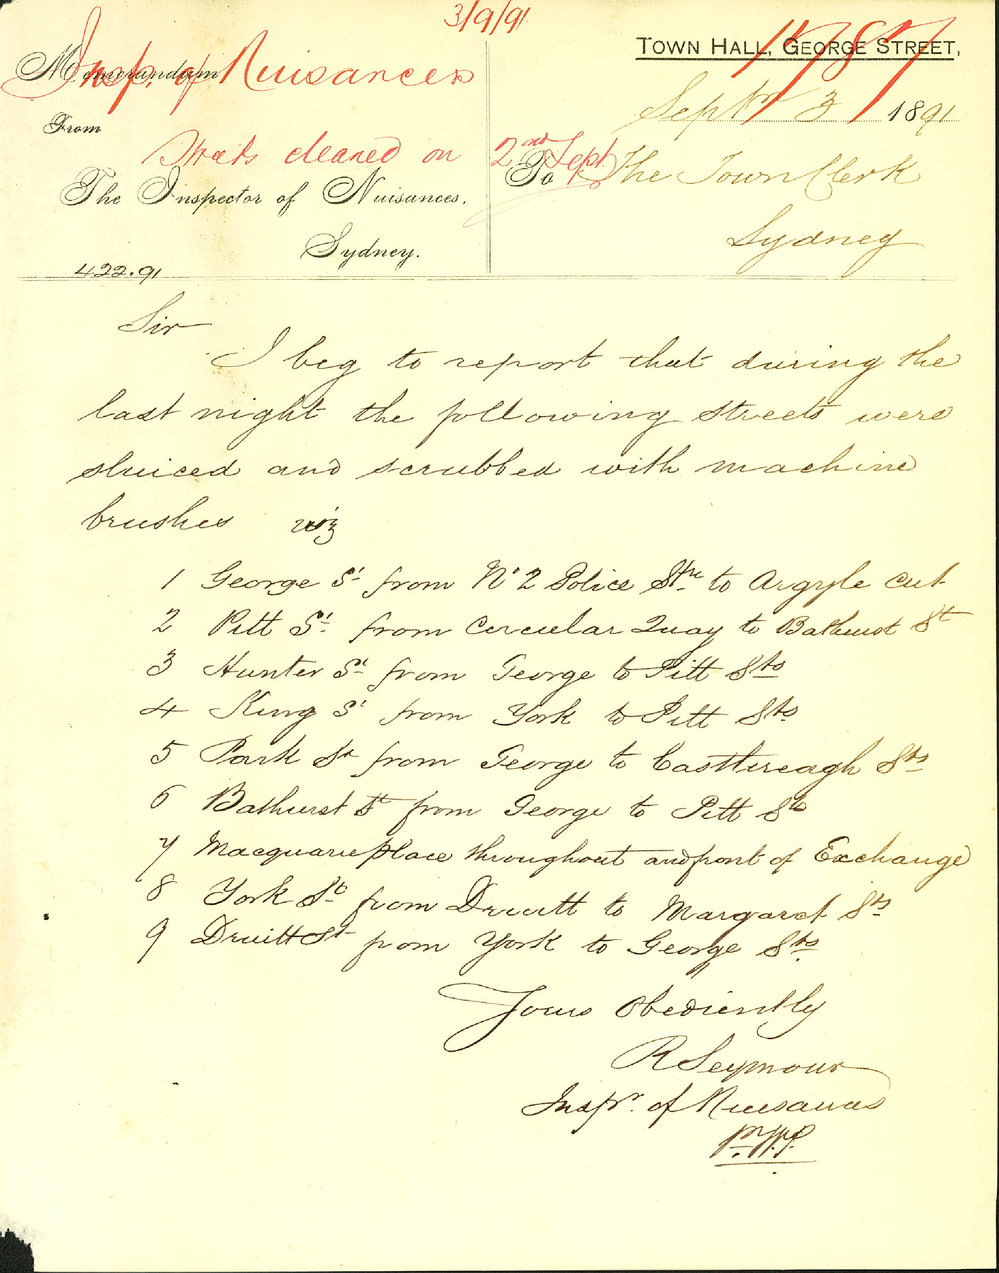 3/9/91
Insp. of Nuisances
11787
Memorandum
TOWN HALL, GEORGE STREET,
Septr 3 1891
From
Streets cleaned on 2nd Sept
To The Town Clerk
The Inspector of Nuisances,
Sydney
Sydney.
422.91
Sir
I beg to report that during the
last night the following streets were
sluiced and scrubbed with machine
brushes viz
1 George St from No 2 Police Stn to Argyle cut
2 Pitt St from Circular Quay to Bathurst St
3 Hunter St from George to Pitt Sts
4 King St from York to Pitt Sts
5 Park St from George to Castlereagh Sts
6 Bathurst St from George to Pitt Sts
7 Macquarie place throughout and front of Exchange
8 York St from Druitt to Margaret Sts
9 Druitt St from York to George Sts
Yours Obediently
R Seymour
Inspr. of Nuisances